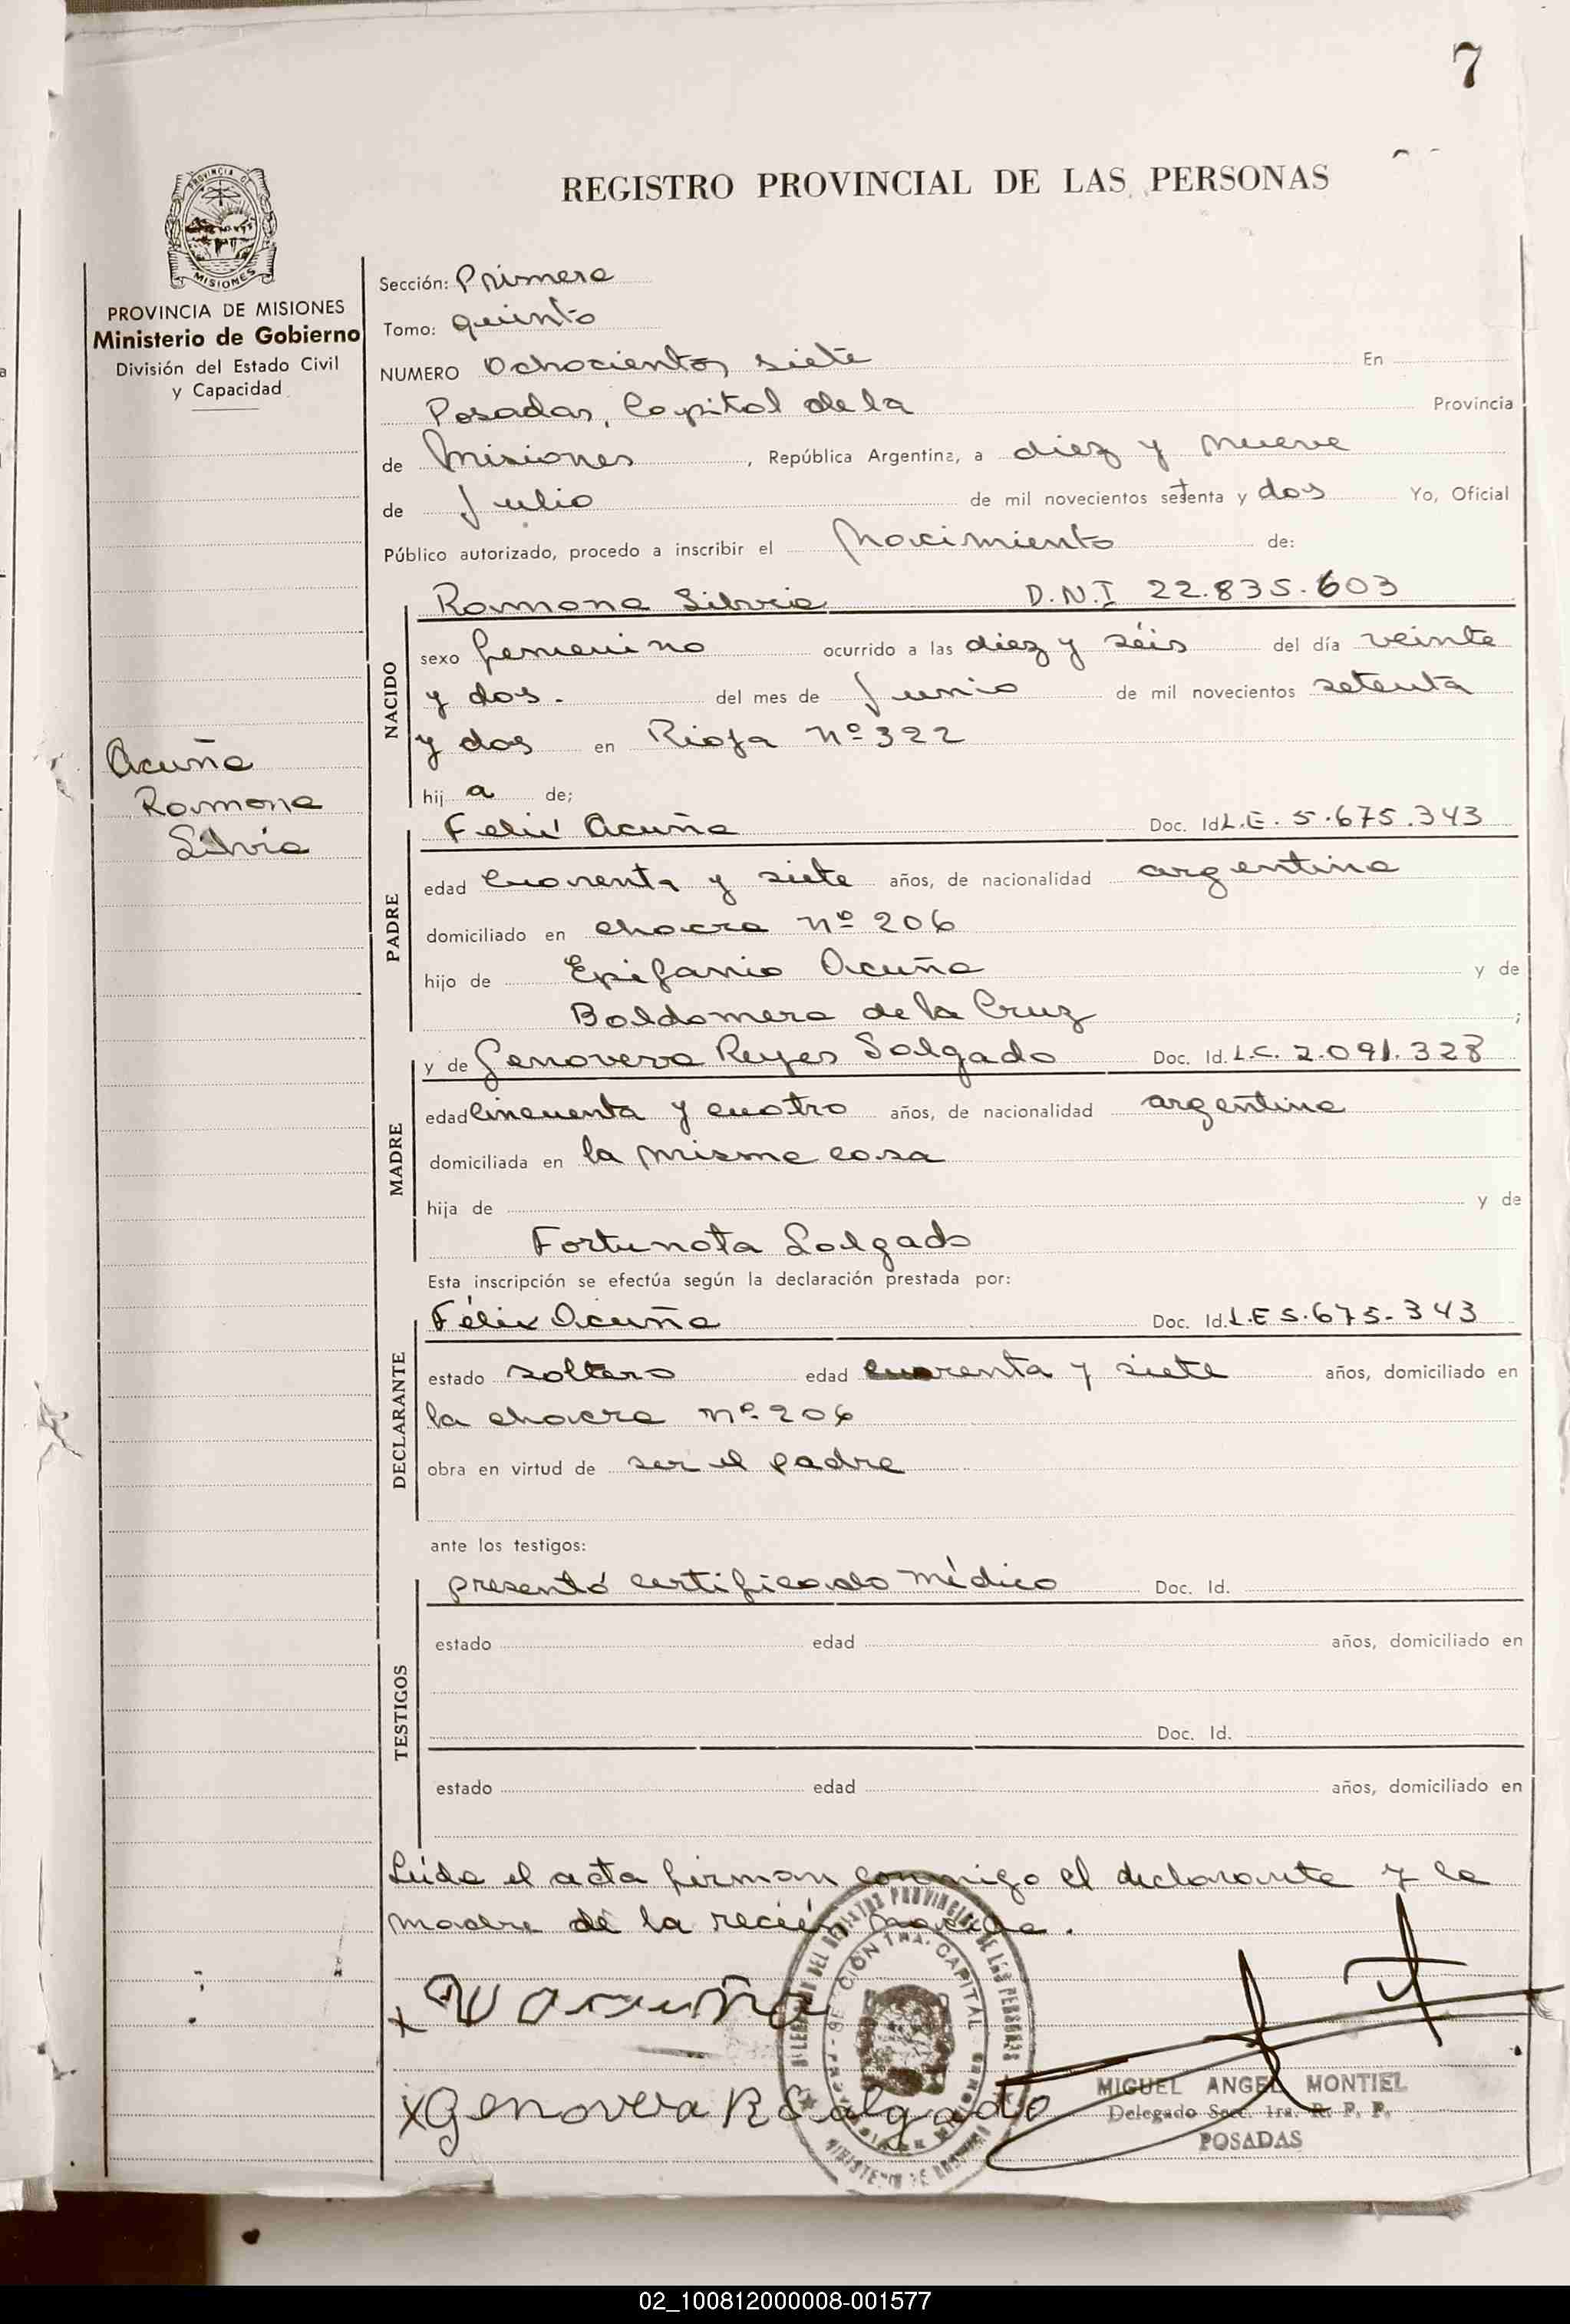 7
REGISTRO PROVINCIAL DE LAS PERSONAS
PROVINCIA DE
MISIONES
PROVINCIA DE MISIONES
Ministerio de Gobierno
División del Estado Civil
y Capacidad
Acuña
Ramona
Silvia
Sección: Primera
Tomo: quinto
NUMERO Ochocientos siete En
Posadas, Capital de la Provincia
de Misiones, República Argentina, a diez y nueve
de Julio de mil novecientos setenta y dos Yo, Oficial
Público autorizado, procedo a inscribir el Nacimiento de:
NACIDO
Ramona Silvia D.N.I 22.835.603
sexo femenino ocurrido a las diez y séis del día veinte
y dos. del mes de Junio de mil novecientos setenta
y dos en Rioja Nº 322
hij a de;
PADRE
Felix Acuña Doc. Id L.E. 5.675.343
edad Cuarenta y siete años, de nacionalidad argentina
domiciliado en chacra nº 206
hijo de Epifanio Acuña y de
Baldomera de la Cruz ;
MADRE
y de Genoveva Reyes Salgado Doc. Id. L.C. 2.091.328
edad Cincuenta y cuatro años, de nacionalidad argentina
domiciliada en la misma casa
hija de y de
Fortunata Salgado
Esta inscripción se efectúa según la declaración prestada por:
DECLARANTE
Félix Acuña Doc. Id. L.E 5.675.343
estado soltero edad cuarenta y siete años, domiciliado en
la chacra nº 206
obra en virtud de ser el padre
ante los testigos:
TESTIGOS
presentó certificado médico Doc. Id.
estado edad años, domiciliado en
Doc. Id.
estado edad años, domiciliado en
Leída el acta firman conmigo el declarante y la
madre de la recién nacida.
x acuña
x Genoveva R Salgado
DEL REGISTRO PROVINCIAL DE LAS PERSONAS
CION 1RA. CAPITAL
MIGUEL ANGEL MONTIEL
Delegado Secc. 1ra. R. P. P.
POSADAS
02_100812000008-001577